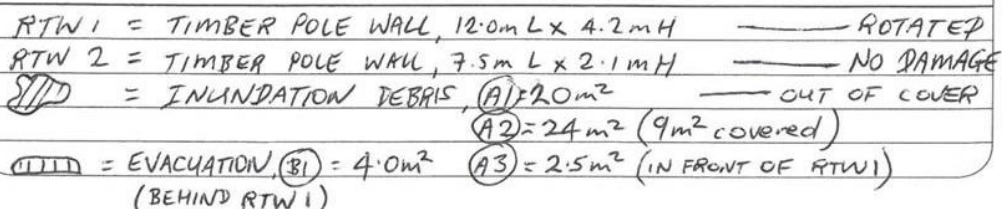 RTW 1 = TIMBER POLE WALL, 12.0m L x 4.2m H — ROTATED
RTW 2 = TIMBER POLE WALL, 7.5m L x 2.1m H — NO DAMAGE
= INUNDATION DEBRIS, A1 = 20m² — OUT OF COVER
A2 = 24m² (9m² covered)
= EVACUATION, B1 = 4.0m² A3 = 2.5m² (IN FRONT OF RTW1)
(BEHIND RTW 1)